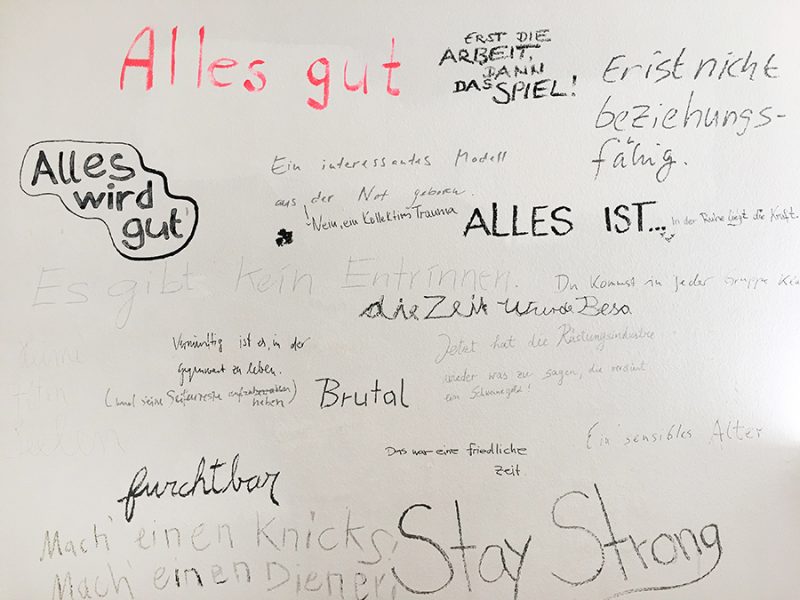 Alles gut
ERST DIE
ARBEIT,
DANN
DAS SPIEL!
Er ist nicht
beziehungs-
fähig.
Alles
wird
gut
Ein interessantes Modell
aus der Not geboren.
Nein, ein Kollektives Trauma
ALLES IST...
In der Ruhe liegt die Kraft.
Es gibt kein Entrinnen.
Du kommst in jeder Gruppe
die Zeit wurde Beso
Vernünftig ist es, in der
Gegenwart zu leben.
(und seine Seifenreste
heben)
Brutal
Jetzt hat die Rüstungsindustrie
wieder was zu sagen, die verdient
ein Schweinegeld!
Ein sensibles Alter
Das war eine friedliche
Zeit.
furchtbar
Mach' einen Knicks,
Mach' einen Diener,
Stay Strong